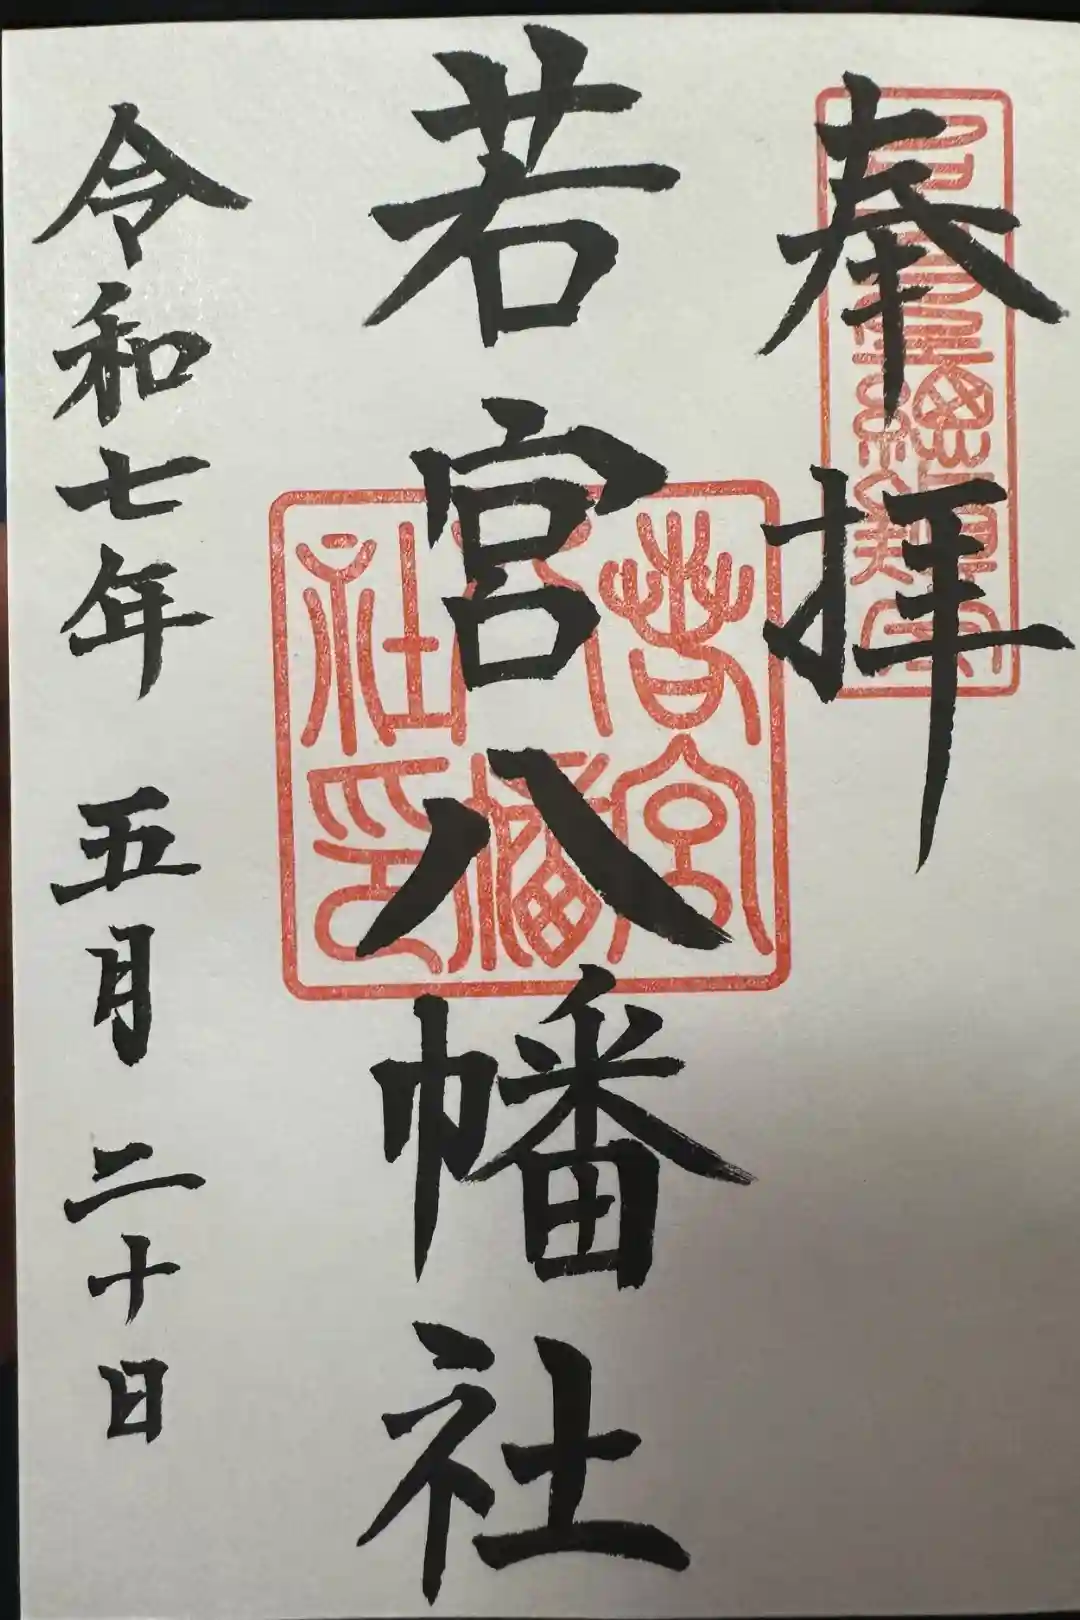 奉拝
若宮八幡社
令和七年 五月 二十日
若宮八幡社印